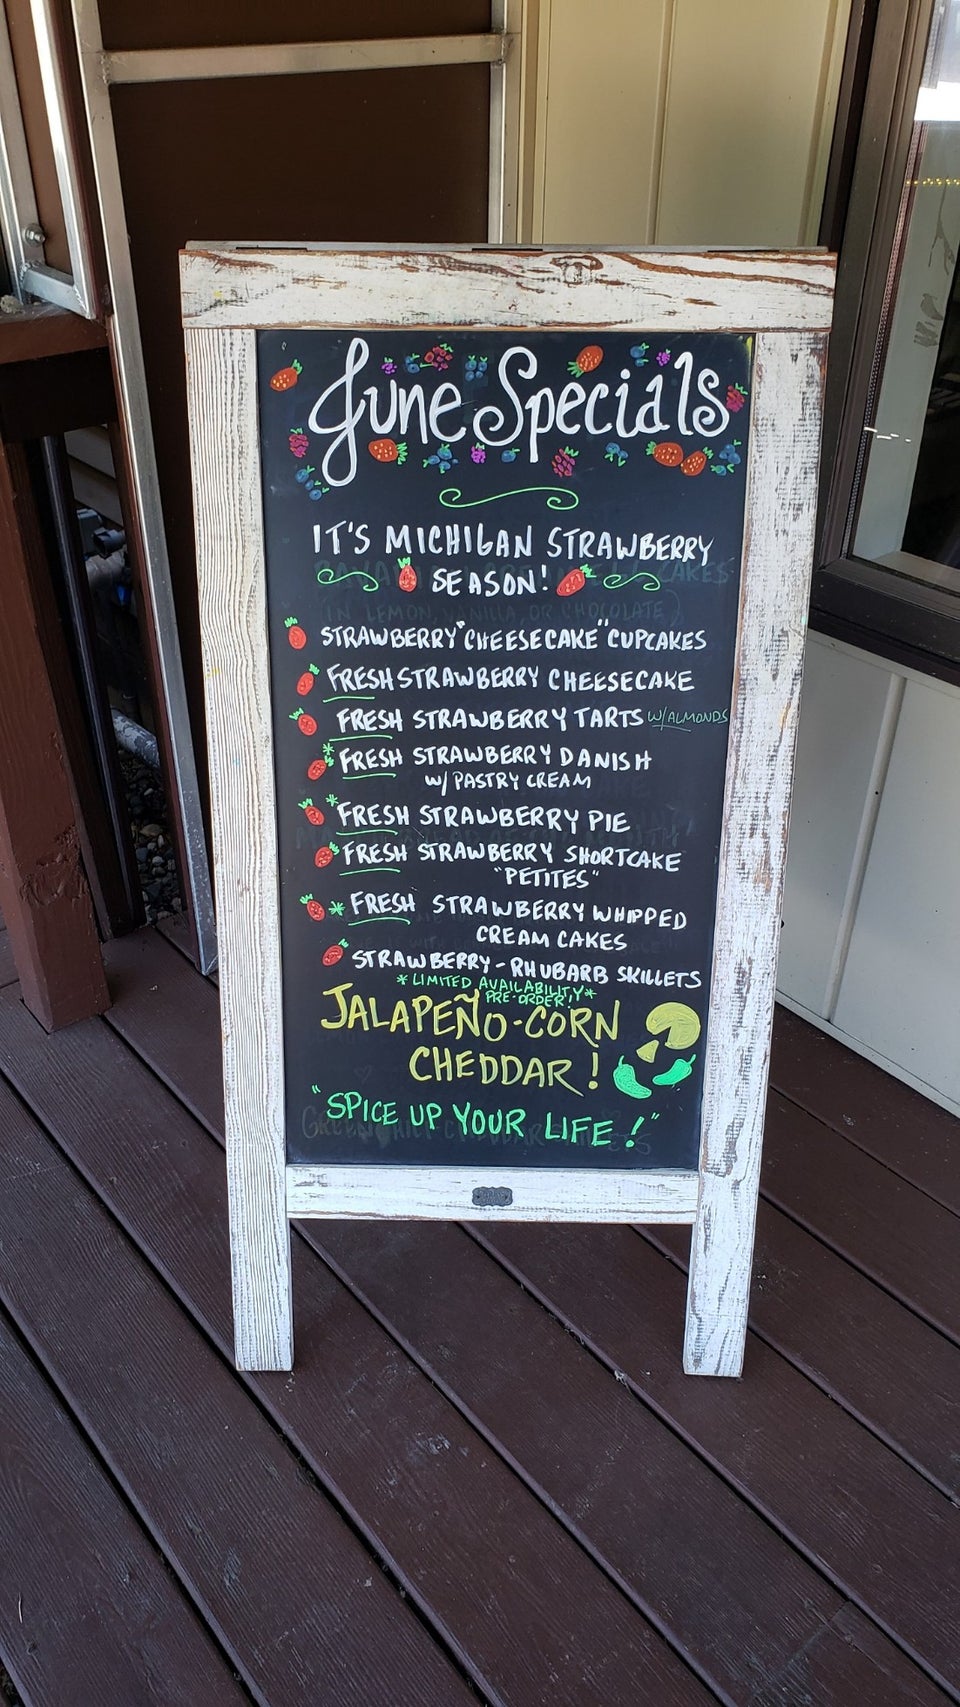 June Specials
IT'S MICHIGAN STRAWBERRY
SEASON!
STRAWBERRY "CHEESECAKE" CUPCAKES
FRESH STRAWBERRY CHEESECAKE
FRESH STRAWBERRY TARTS W/ALMONDS
* FRESH STRAWBERRY DANISH
W/ PASTRY CREAM
* FRESH STRAWBERRY PIE
FRESH STRAWBERRY SHORTCAKE
"PETITES"
* FRESH STRAWBERRY WHIPPED
CREAM CAKES
STRAWBERRY-RHUBARB SKILLETS
*LIMITED AVAILABILITY*
PRE-ORDER!
JALAPEÑO-CORN
CHEDDAR!
"SPICE UP YOUR LIFE!"